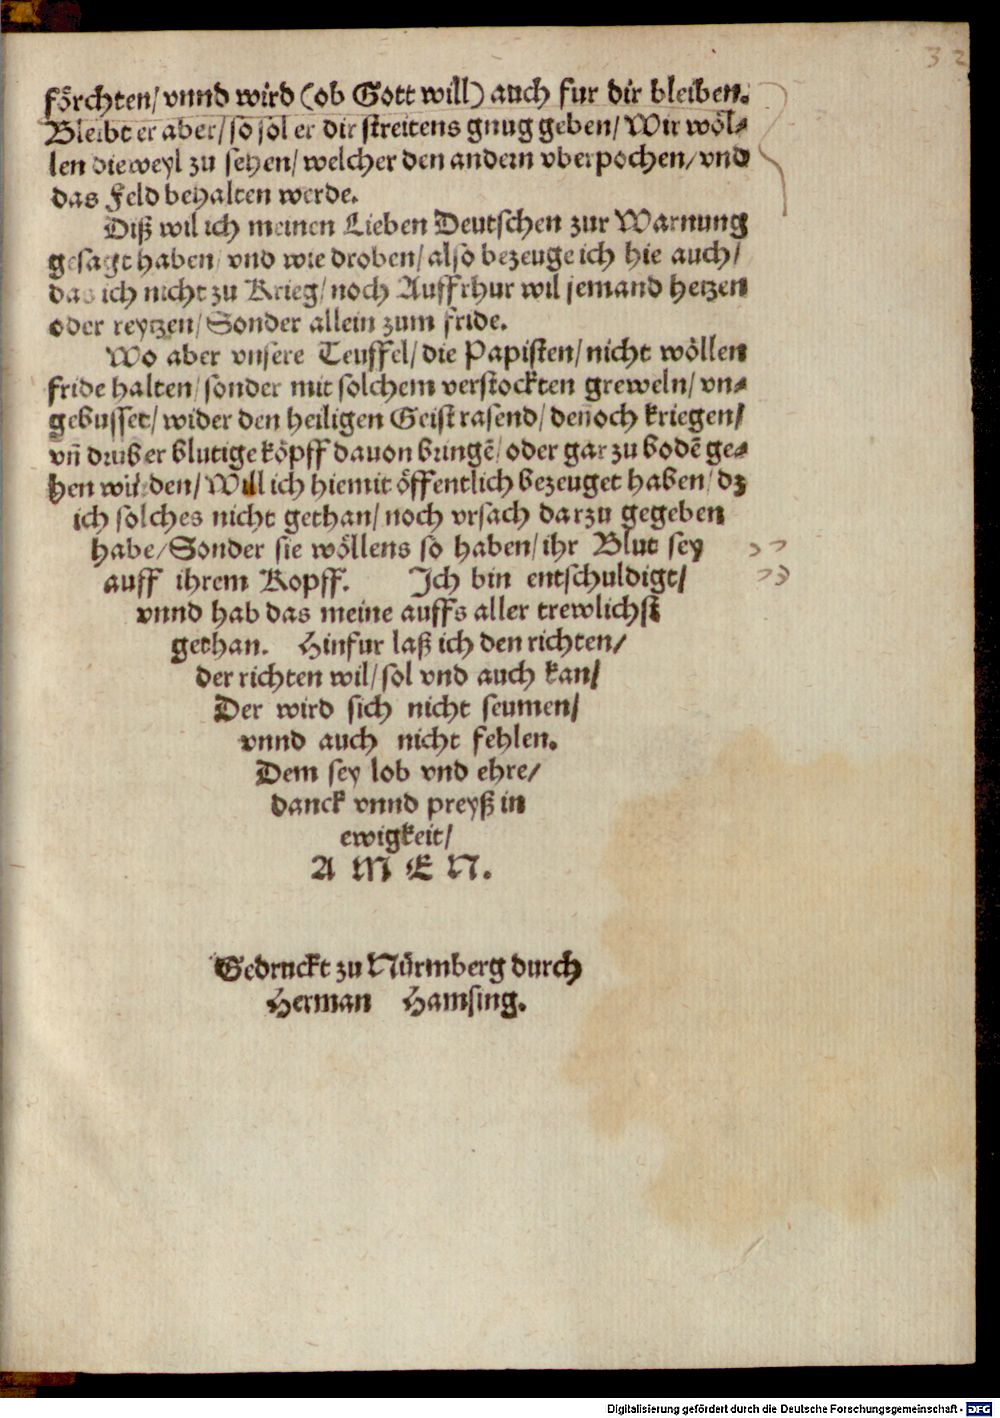 32
förchten/ vnnd wird (ob Gott will) auch fur dir bleiben.
Bleibt er aber/ so sol er dir streitens gnug geben/ Wir wöl-
len dieweyl zu sehen/ welcher den andern vberpochen/ vnd
das Feld behalten werde.
Diß wil ich meinen Lieben Deutschen zur Warnung
gesagt haben/ vnd wie droben/ also bezeuge ich hie auch/
das ich nicht zu Krieg/ noch Auffrhur wil jemand hetzen
oder reytzen/ Sonder allein zum fride.
Wo aber vnsere Teuffel/ die Papisten/ nicht wöllen
fride halten/ sonder mit solchem verstockten greweln/ vn-
gebusset/ wider den heiligen Geist rasend/ deñoch kriegen/
vñ druber blutige köpff dauon bringẽ/ oder gar zu bodẽ ge-
hen würden/ Will ich hiemit öffentlich bezeuget haben/ dz
ich solches nicht gethan/ noch vrsach darzu gegeben
habe/ Sonder sie wöllens so haben/ ihr Blut sey
auff ihrem Kopff. Ich bin entschuldigt/
vnnd hab das meine auffs aller trewlichst
gethan. Hinfur laß ich den richten/
der richten wil/ sol vnd auch kan/
Der wird sich nicht seumen/
vnnd auch nicht fehlen.
Dem sey lob vnd ehre/
danck vnnd preyß in
ewigkeit/
A M E N.
Gedruckt zu Nürmberg durch
Herman Hamsing.
Digitalisierung gefördert durch die Deutsche Forschungsgemeinschaft - DFG